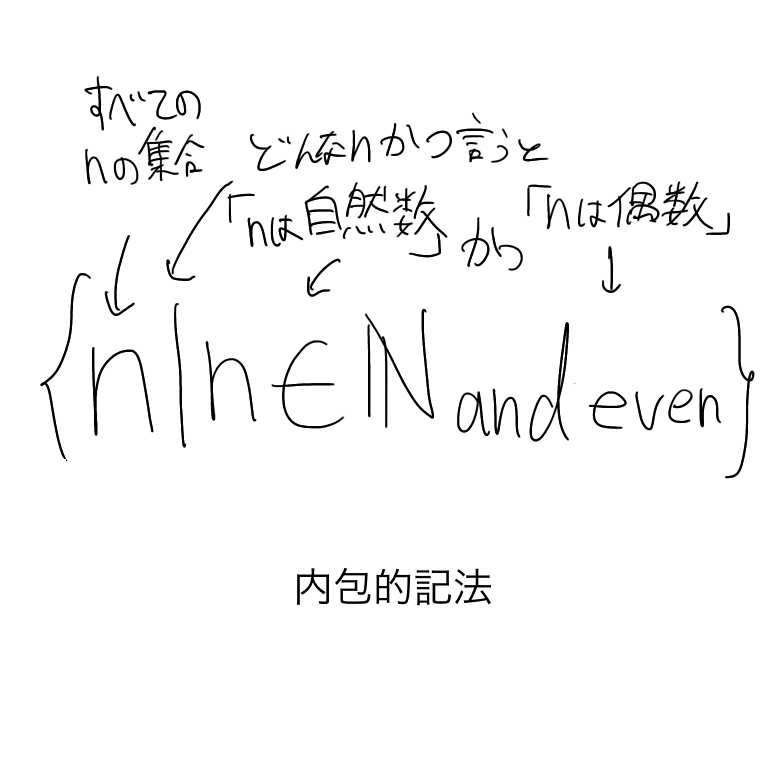 すべての
nの集合 どんなnかつ言うと
「nは自然数」かつ「nは偶数」
{n|n∈ℕ and even}
内包的記法